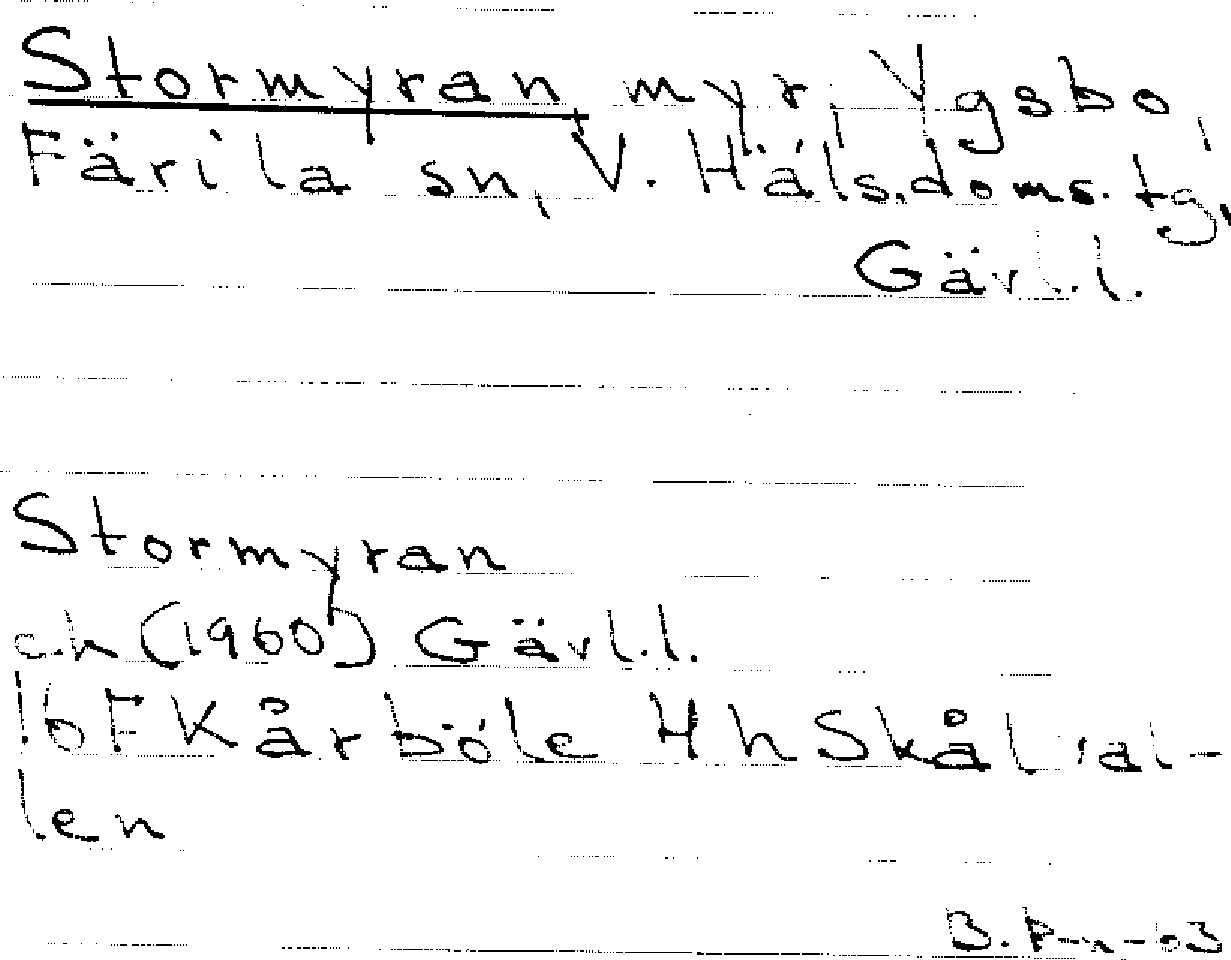 Stormyran, myr, Ygsbo,
Färila sn, V. Häls.doms. tg,
Gävl.l.
Stormyran
ek (1960) Gävl.l.
16F Kårböle 4h Skål
len